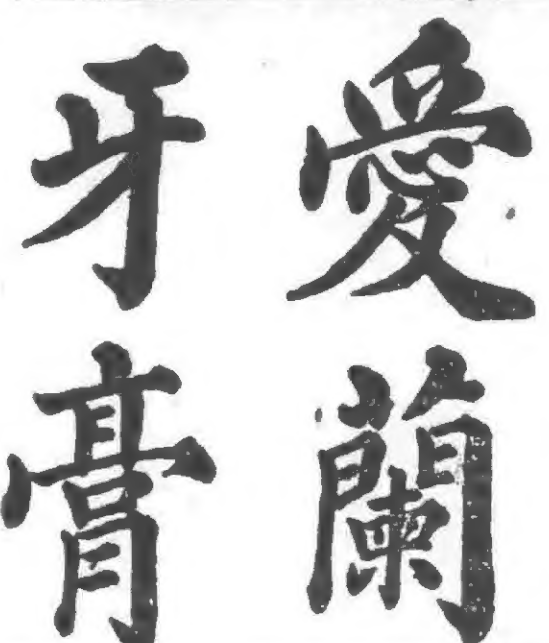 愛蘭
牙膏